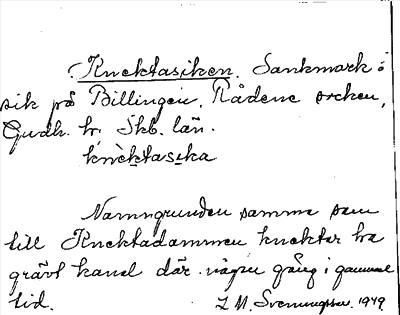 Knektasiken. Sankmark:
sik på Billingen, Rådene socken,
Gudh. hr. Skb. län.
knèktasika
Namngrunden samma som
till Knektadammen knektar ha
grävt kanal där någon gång i gammal
tid. L. M. Svenungsson. 1949.